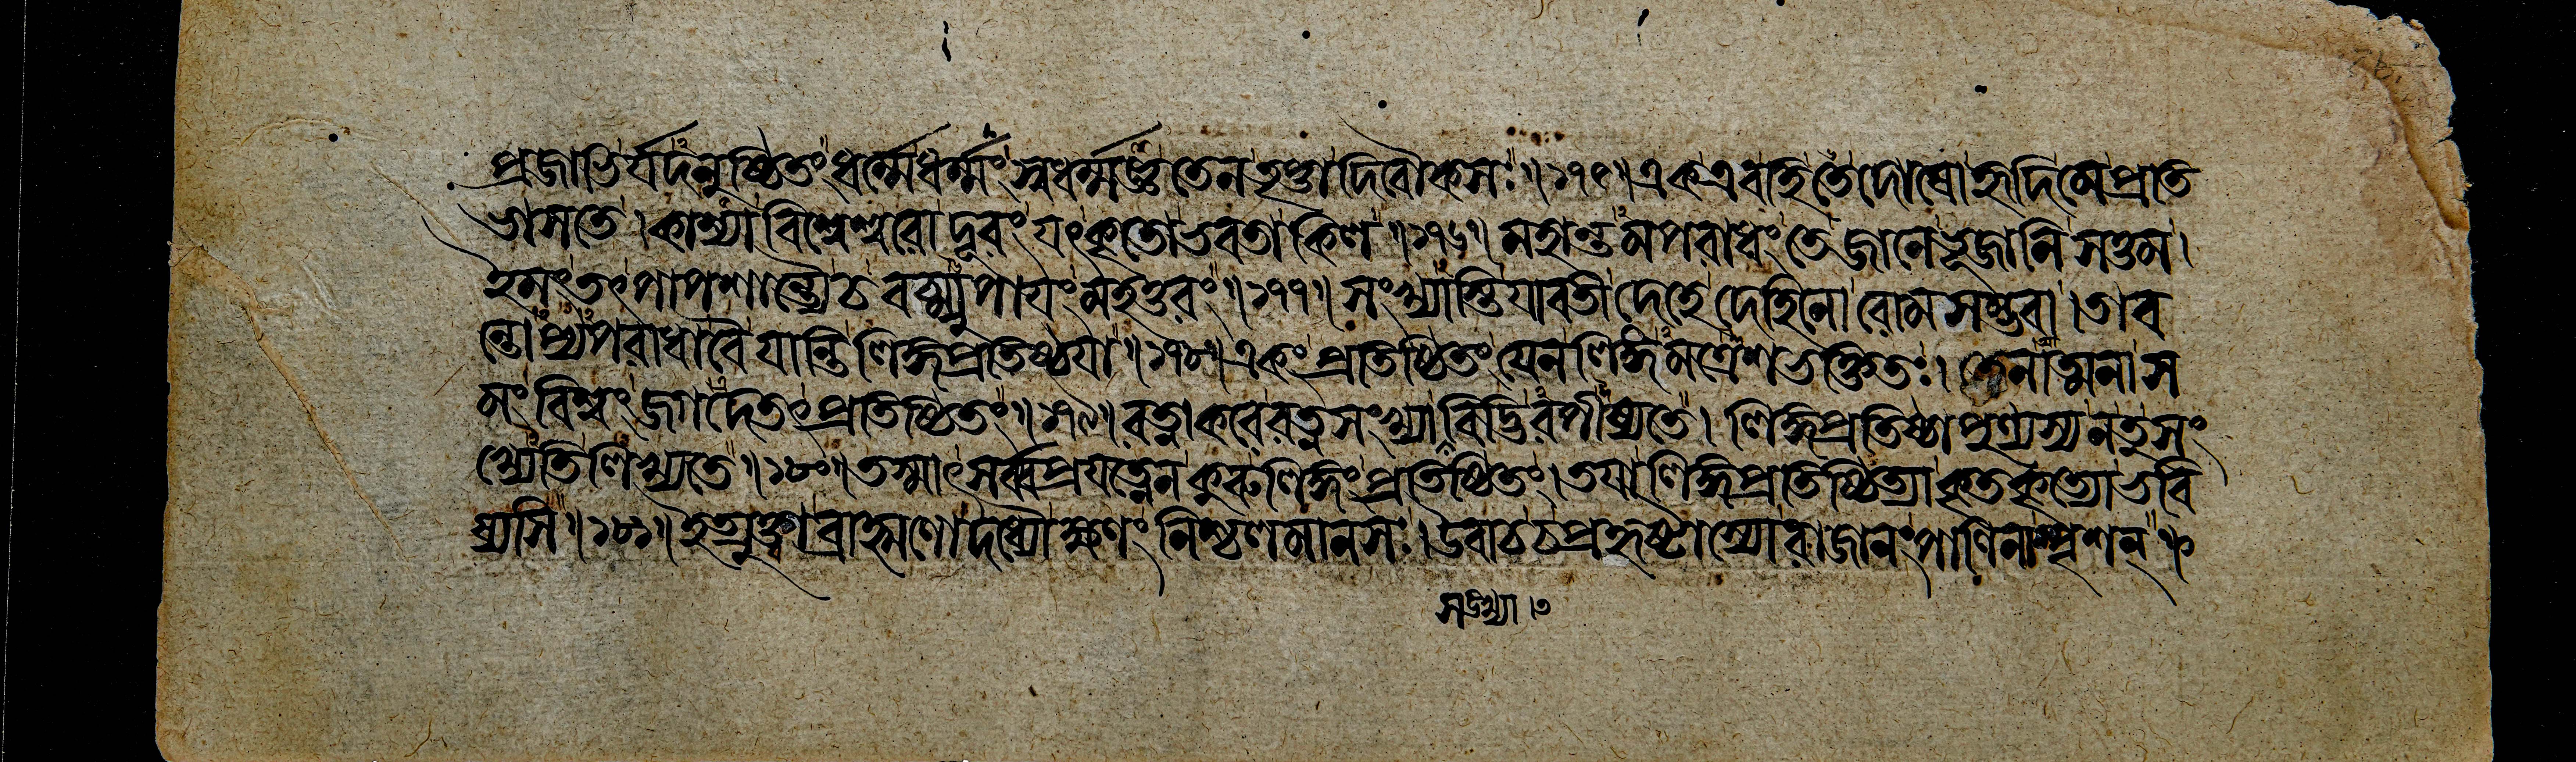 প্রজাভির্যদনুষ্ঠিতং ধর্ম্মেধর্ম্মং সুধর্ম্মজ্ঞ তেন তৃপ্তা দিবৌকসঃ ॥ ১৭৫ ॥ এক এবাত্র তে দোষো হৃদি মে প্রতি
ভাসতে । কাশ্যা বিশ্বেশ্বরো দূরং যৎ কৃতো ভবতা কিল ॥ ১৭৬ ॥ মহান্তমপরাধং তে জানে ভূজানি সত্তম ।
ইমং তৎপাপশান্ত্যৈ চ বচ্ম্যুপায়ং মহত্তরং ॥ ১৭৭ ॥ সংখ্যাস্তি যাবতী দেহে দেহিনো রোমসম্ভবা । তাব
ন্তোপ্যপরাধা বৈ যান্তি লিঙ্গপ্রতিষ্ঠয়া ॥ ১৭৮ ॥ একং প্রতিষ্ঠিতং যেন লিঙ্গমত্রেশভক্তিতঃ । তেনাত্মনা স
মং বিশ্বং জগদেতৎ প্রতিষ্ঠিতং ॥ ১৭৯ ॥ রত্নাকরে রত্নসংখ্যা বিদ্ভিরপীষ্যতে । লিঙ্গপ্রতিষ্ঠাপুণ্যস্য ন তু সং
খ্যেতি লিখ্যতে ॥ ১৮০ ॥ তস্মাৎ সর্ব্বপ্রযত্নেন কুরু লিঙ্গং প্রতিষ্ঠিতং । তয়া লিঙ্গপ্রতিষ্ঠিত্যা কৃতকৃত্যো ভবি
ষ্যসি ॥ ১৮১ ॥ ইত্যুক্ত্বা ব্রাহ্মণো দধ্যৌ ক্ষণং নিশ্চলমানসঃ । উবাচ চ প্রহৃষ্টাস্যো রাজানং পাণিনা স্পৃশন্ ॥